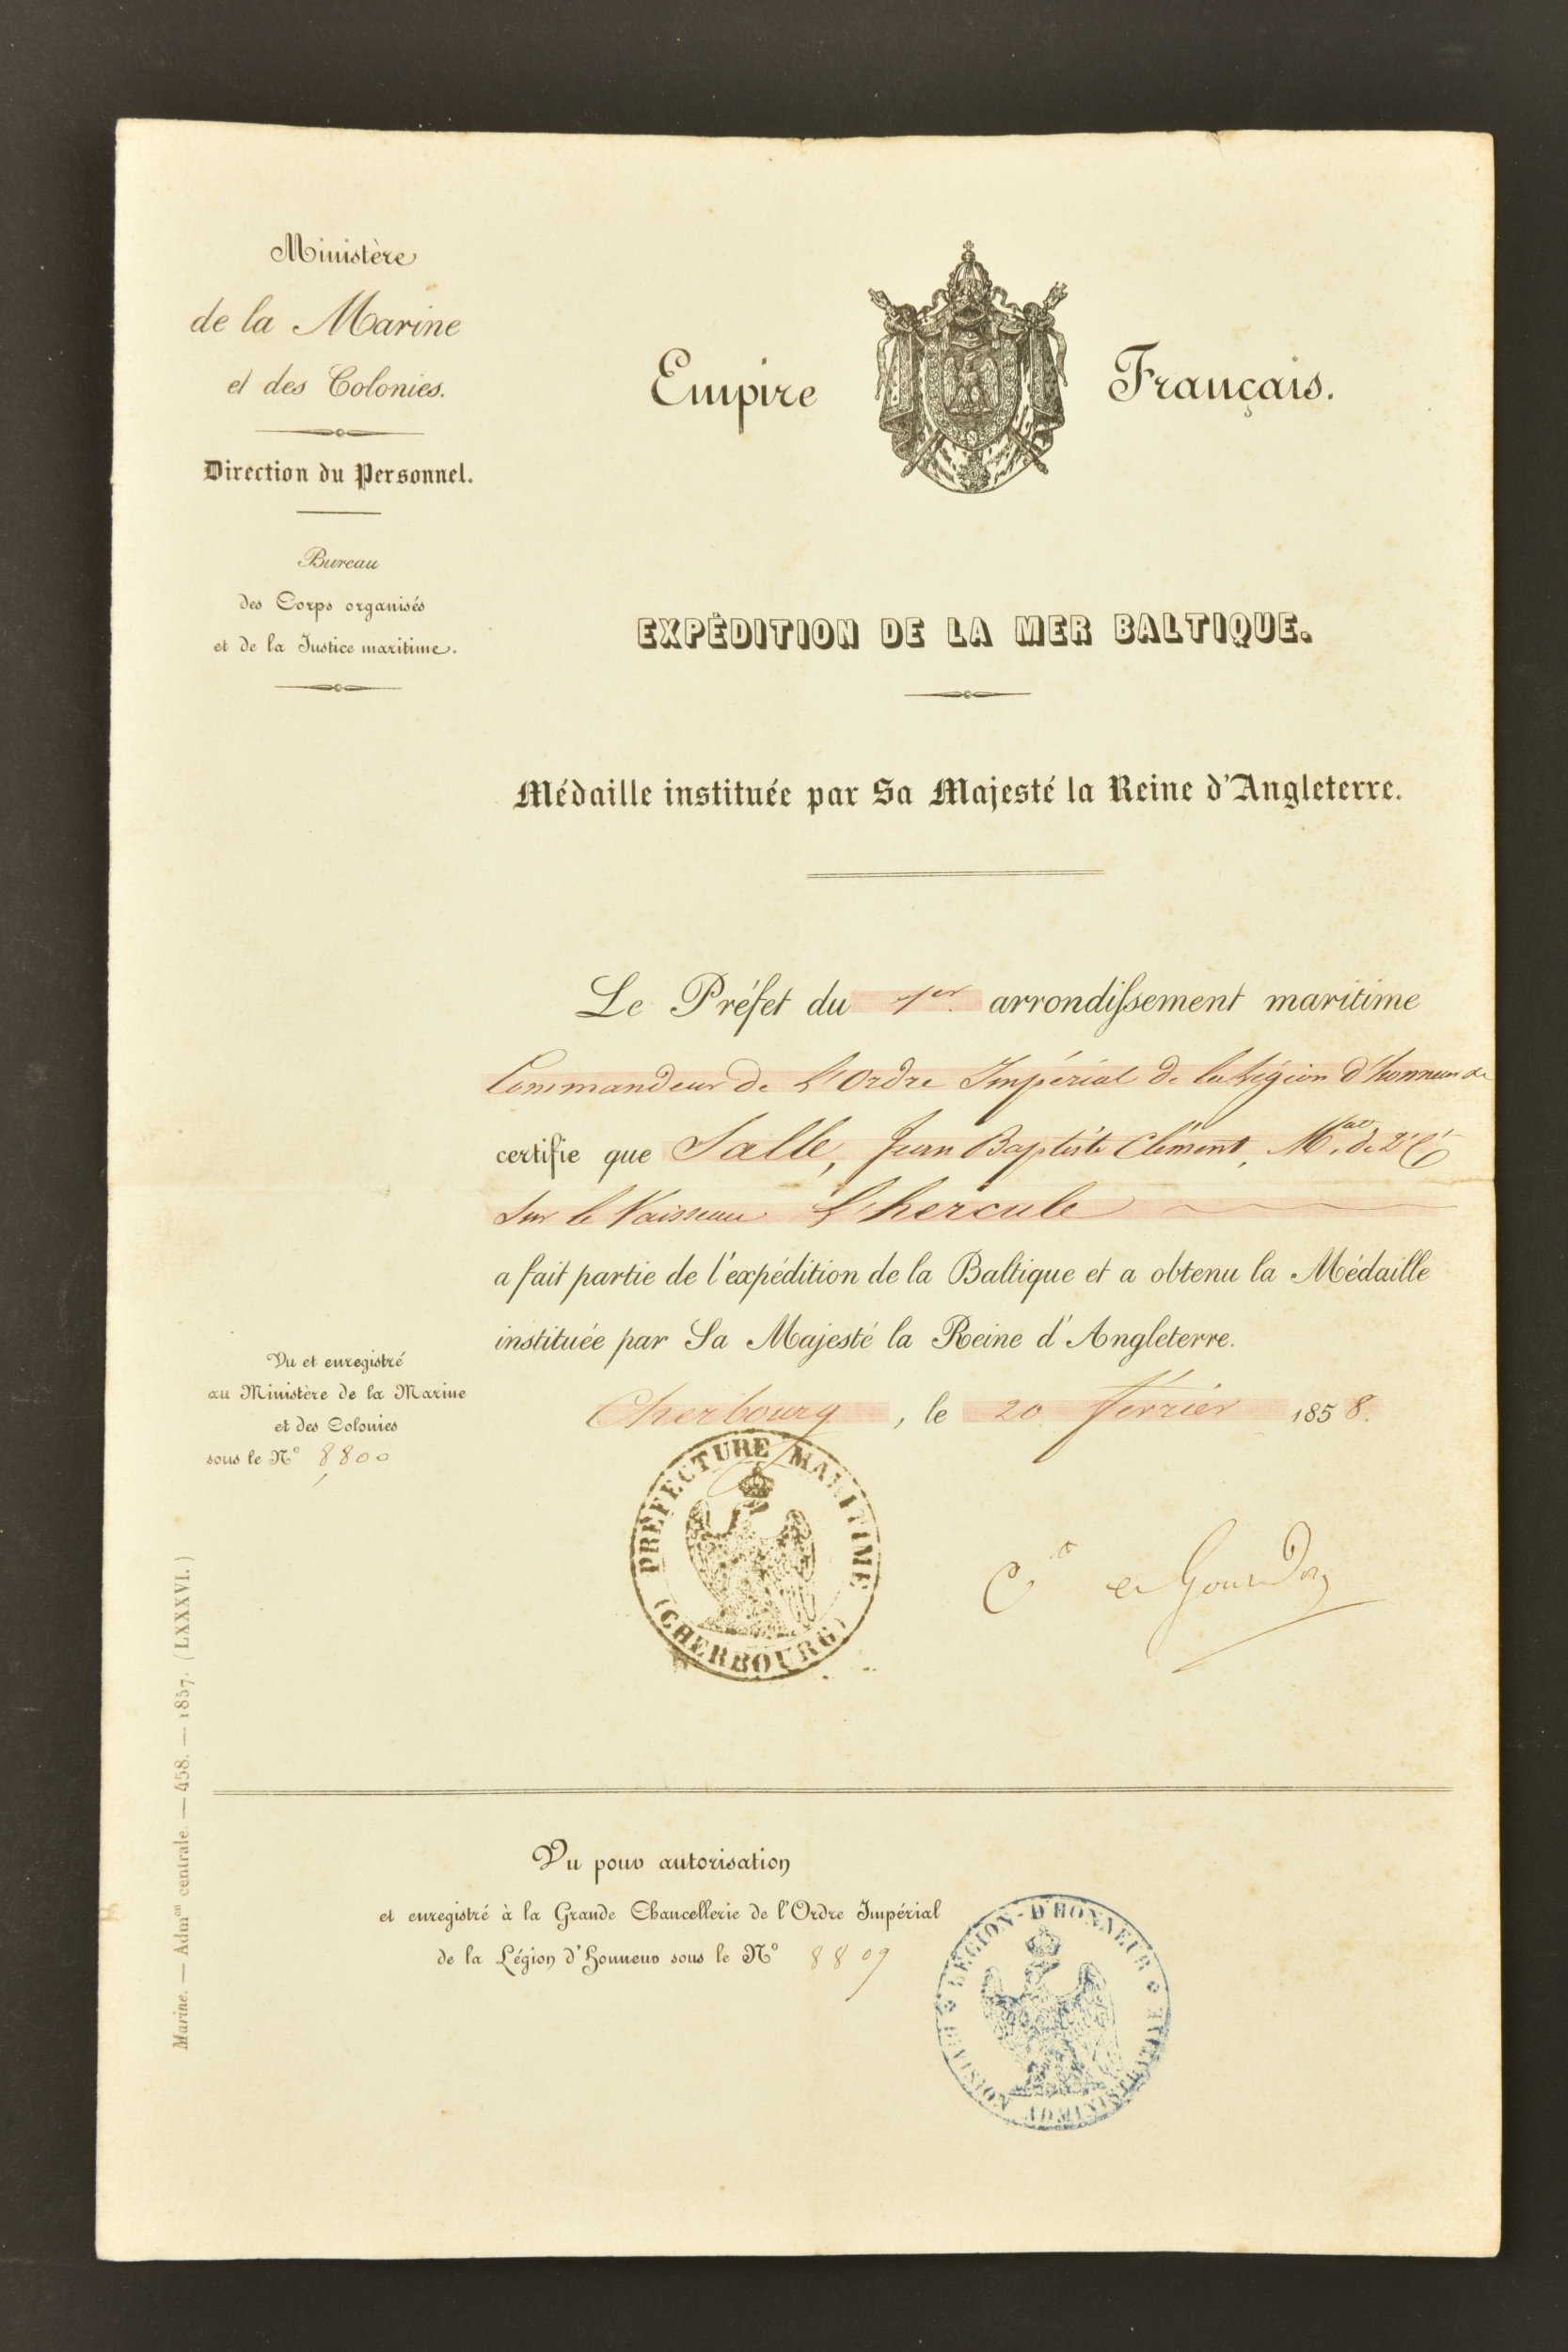 Ministère
de la Marine
et des Colonies.
Direction du Personnel.
Bureau
des Corps organisés
et de la Justice maritime.
Empire Français.
EXPÉDITION DE LA MER BALTIQUE.
Médaille instituée par Sa Majesté la Reine d'Angleterre.
Le Préfet du 1er arrondissement maritime
Commandeur de L'Ordre Impérial de la Légion d'honneur
certifie que Salle, Jean Baptiste Clément, M.lot de 2e Cl
Sur le Vaisseau L'hercule
a fait partie de l'expédition de la Baltique et a obtenu la Médaille
instituée par Sa Majesté la Reine d'Angleterre.
Cherbourg, le 20 février 1858.
Vu et enregistré
au Ministère de la Marine
et des Colonies
sous le N° 8800
PRÉFECTURE MARITIME
(CHERBOURG)
Gourdon
Marine. — Admon centrale. — 458. — 1857. (LXXXVI.)
Vu pour autorisation
et enregistré à la Grande Chancellerie de l'Ordre Impérial
de la Légion d'Honneur sous le N° 8809
LÉGION-D'HONNEUR
DIVISION ADMINISTRATIVE